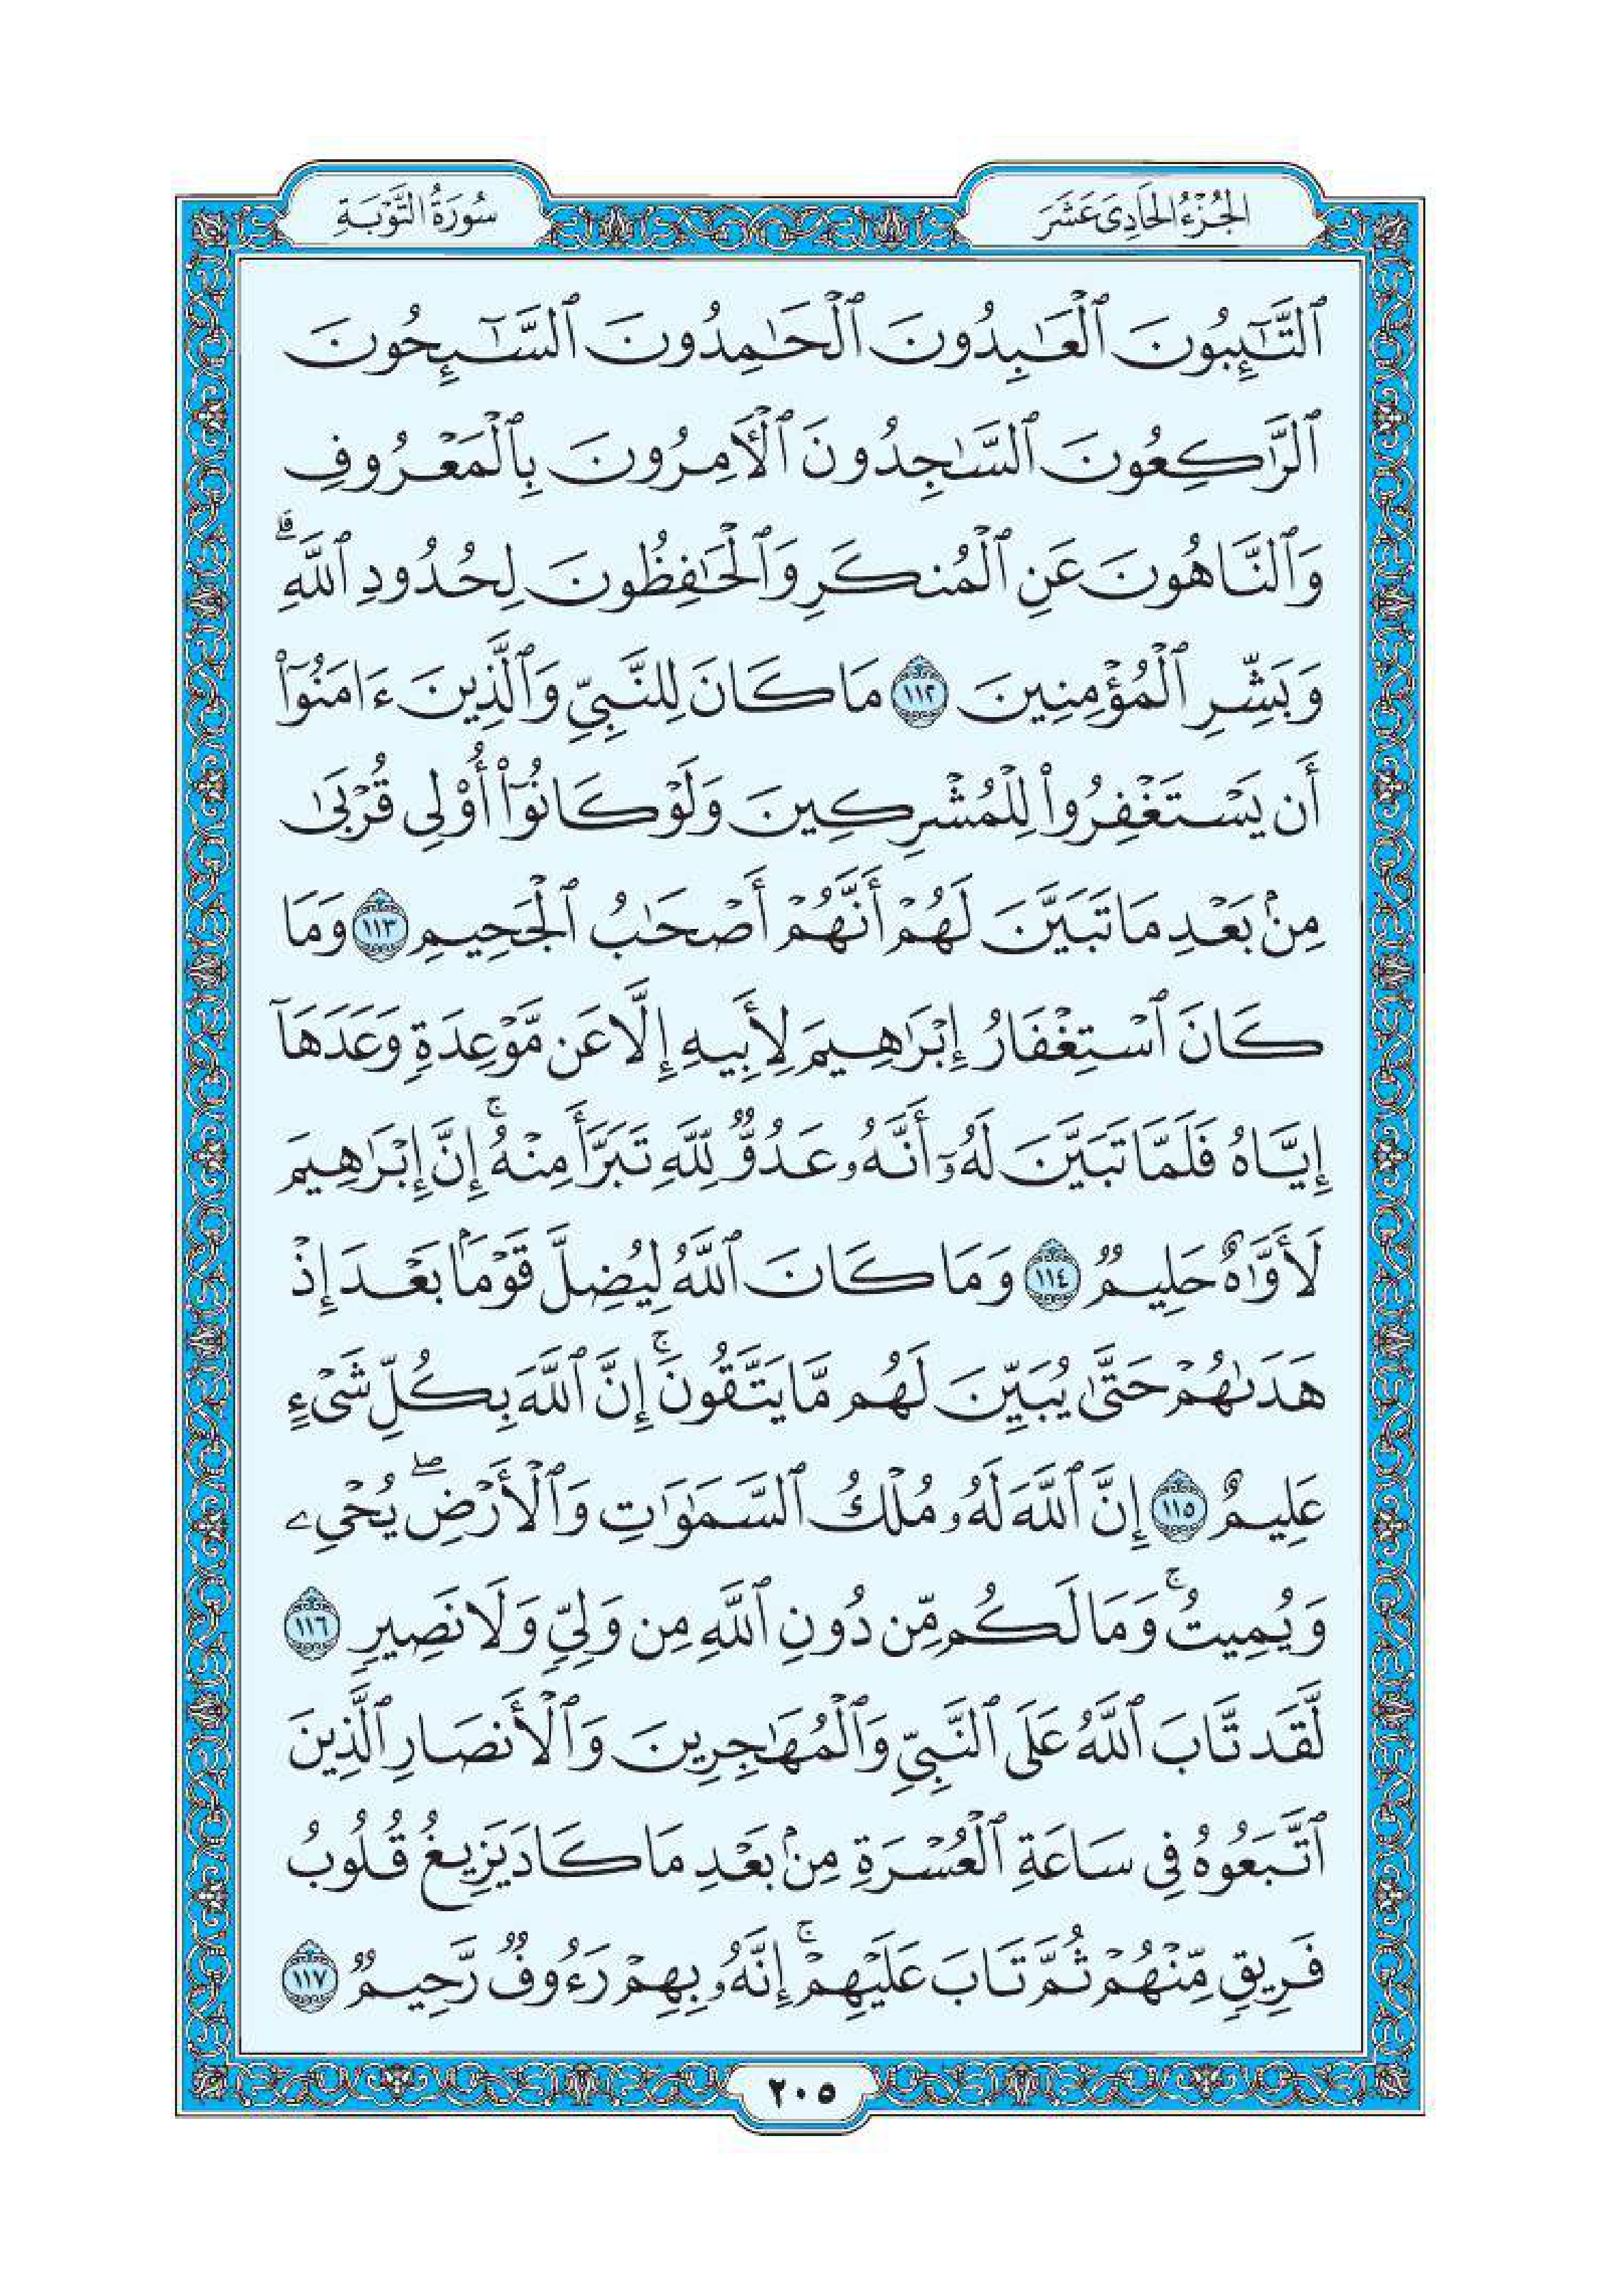 الجُزْءُ الحَادِىَ عَشَرَ
سُورَةُ التَّوْبَةِ
ٱلتَّـٰٓئِبُونَ ٱلْعَـٰبِدُونَ ٱلْحَـٰمِدُونَ ٱلسَّـٰٓئِحُونَ
ٱلرَّٰكِعُونَ ٱلسَّـٰجِدُونَ ٱلْـَٔامِرُونَ بِٱلْمَعْرُوفِ
وَٱلنَّاهُونَ عَنِ ٱلْمُنكَرِ وَٱلْحَـٰفِظُونَ لِحُدُودِ ٱللَّهِ ۗ
وَبَشِّرِ ٱلْمُؤْمِنِينَ ١١٢ مَا كَانَ لِلنَّبِىِّ وَٱلَّذِينَ ءَامَنُوٓا۟
أَن يَسْتَغْفِرُوا۟ لِلْمُشْرِكِينَ وَلَوْ كَانُوٓا۟ أُو۟لِى قُرْبَىٰ
مِنۢ بَعْدِ مَا تَبَيَّنَ لَهُمْ أَنَّهُمْ أَصْحَـٰبُ ٱلْجَحِيمِ ١١٣ وَمَا
كَانَ ٱسْتِغْفَارُ إِبْرَٰهِيمَ لِأَبِيهِ إِلَّا عَن مَّوْعِدَةٍ وَعَدَهَآ
إِيَّاهُ فَلَمَّا تَبَيَّنَ لَهُۥٓ أَنَّهُۥ عَدُوٌّ لِّلَّهِ تَبَرَّأَ مِنْهُ ۚ إِنَّ إِبْرَٰهِيمَ
لَأَوَّٰهٌ حَلِيمٌ ١١٤ وَمَا كَانَ ٱللَّهُ لِيُضِلَّ قَوْمًۢا بَعْدَ إِذْ
هَدَىٰهُمْ حَتَّىٰ يُبَيِّنَ لَهُم مَّا يَتَّقُونَ ۚ إِنَّ ٱللَّهَ بِكُلِّ شَىْءٍ
عَلِيمٌ ١١٥ إِنَّ ٱللَّهَ لَهُۥ مُلْكُ ٱلسَّمَـٰوَٰتِ وَٱلْأَرْضِ ۖ يُحْىِۦ
وَيُمِيتُ ۚ وَمَا لَكُم مِّن دُونِ ٱللَّهِ مِن وَلِىٍّ وَلَا نَصِيرٍ ١١٦
لَّقَد تَّابَ ٱللَّهُ عَلَى ٱلنَّبِىِّ وَٱلْمُهَـٰجِرِينَ وَٱلْأَنصَارِ ٱلَّذِينَ
ٱتَّبَعُوهُ فِى سَاعَةِ ٱلْعُسْرَةِ مِنۢ بَعْدِ مَا كَادَ يَزِيغُ قُلُوبُ
فَرِيقٍ مِّنْهُمْ ثُمَّ تَابَ عَلَيْهِمْ ۚ إِنَّهُۥ بِهِمْ رَءُوفٌ رَّحِيمٌ ١١٧
٢٠٥